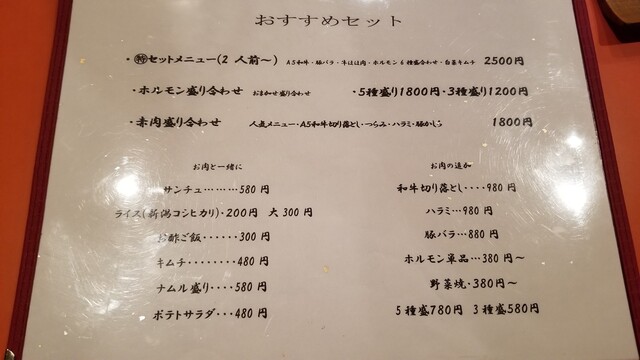 おすすめセット
・㊕セットメニュー(2 人前～) A5和牛・豚バラ・牛ほほ肉・ホルモン6種盛合わせ・白菜キムチ 2500円
・ホルモン盛り合わせ おまかせ盛り合わせ ・5種盛り1800円・3種盛り1200円
・赤肉盛り合わせ 人気メニュー・A5和牛切り落とし・つらみ・ハラミ・豚かしら 1800円
お肉と一緒に
サンチュ………580 円
ライス(新潟コシヒカリ)・200円 大 300 円
お酢ご飯・・・・・・300 円
キムチ・・・・・・・・480 円
ナムル盛り・・・・580 円
ポテトサラダ・・・480 円
お肉の追加
和牛切り落とし・・・・980 円
ハラミ…980 円
豚バラ…880 円
ホルモン単品…380 円～
野菜焼・380円～
5 種盛780円 3 種盛580円